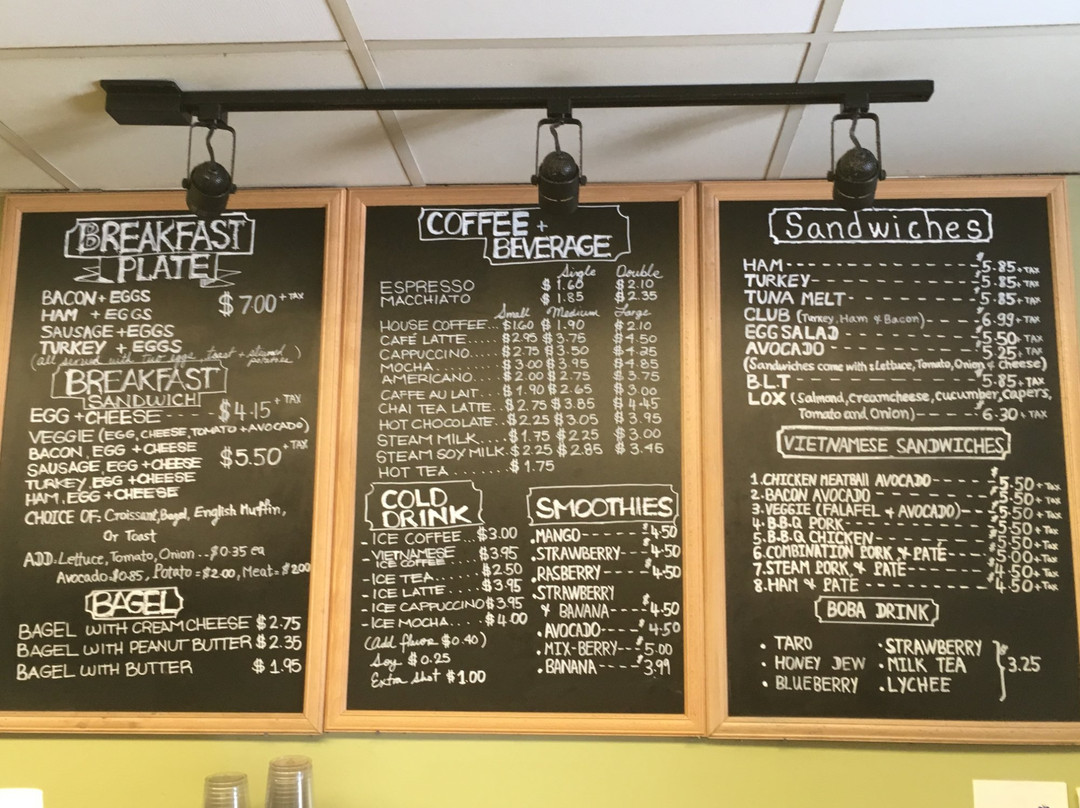 BREAKFAST
PLATE
BACON + EGGS
HAM + EGGS $7.00 + TAX
SAUSAGE + EGGS
TURKEY + EGGS
(all served with two eggs, toast +
BREAKFAST
SANDWICH
EGG + CHEESE --- - $4.15 + TAX
VEGGIE (EGG, CHEESE, TOMATO + AVOCADO)
BACON, EGG + CHEESE
SAUSAGE, EGG + CHEESE $5.50 + TAX
TURKEY, EGG + CHEESE
HAM, EGG + CHEESE
CHOICE OF: Croissant, Bagel, English Muffin,
Or Toast
ADD. Lettuce, Tomato, Onion .. $0.35 ea
Avocado = $0.85, Potato = $2.00, Meat = $2.00
BAGEL
BAGEL WITH CREAM CHEESE $2.75
BAGEL WITH PEANUT BUTTER $2.35
BAGEL WITH BUTTER $1.95
COFFEE +
BEVERAGE
Single Double
ESPRESSO $1.60 $2.10
MACCHIATO $1.85 $2.35
Small Medium Large
HOUSE COFFEE... $1.60 $1.90 $2.10
CAFÉ LATTE..... $2.95 $3.75 $4.50
CAPPUCCINO..... $2.75 $3.50 $4.25
MOCHA.......... $3.00 $3.95 $4.85
AMERICANO...... $2.00 $2.75 $3.75
CAFFE AU LAIT... $1.90 $2.65 $3.00
CHAI TEA LATTE.. $2.75 $3.85 $4.45
HOT CHOCOLATE.. $2.25 $3.05 $3.95
STEAM MILK.... $1.75 $2.25 $3.00
STEAM SOY MILK. $2.25 $2.85 $3.46
HOT TEA ....... $1.75
COLD
DRINK
- ICE COFFEE... $3.00
- VIETNAMESE
ICE COFFEE .... $3.95
- ICE TEA...... $2.50
- ICE LATTE.... $3.95
- ICE CAPPUCCINO $3.95
- ICE MOCHA.... $4.00
(Add flavor $0.40)
Soy $0.25
Extra Shot $1.00
SMOOTHIES
.MANGO------ $4.50
.STRAWBERRY---- $4.50
.RASBERRY------ $4.50
.STRAWBERRY
& BANANA---- $4.50
.AVOCADO---- $4.50
.MIX-BERRY--- $5.00
.BANANA---- $3.99
Sandwiches
HAM--------------- $5.85 + TAX
TURKEY------------ $5.85 + TAX
TUNA MELT--------- $5.85 + TAX
CLUB (Turkey, Ham & Bacon)--- $6.99 + TAX
EGG SALAD--------- $5.50 + TAX
AVOCADO----------- $5.25 + TAX
(Sandwiches come with: Lettuce, Tomato, Onion & Cheese)
B.L.T------------- $5.85 + TAX
LOX (Salmond, creamcheese, cucumber, Capers,
Tomato and Onion)---- $6.30 + TAX
VIETNAMESE SANDWICHES
1. CHICKEN MEATBALL AVOCADO---- $5.50 + TAX
2. BACON AVOCADO------------ $5.50 + TAX
3. VEGGIE (FALAFEL & AVOCADO)--- $5.50 + TAX
4. B.B.Q PORK------------ $5.50 + TAX
5. B.B.Q CHICKEN---------- $5.50 + TAX
6. COMBINATION PORK & PATE---- $5.00 + TAX
7. STEAM PORK & PATE------- $4.50 + TAX
8. HAM & PATE------------- $4.50 + TAX
BOBA DRINK
• TARO • STRAWBERRY
• HONEY DEW • MILK TEA } $3.25
• BLUEBERRY • LYCHEE